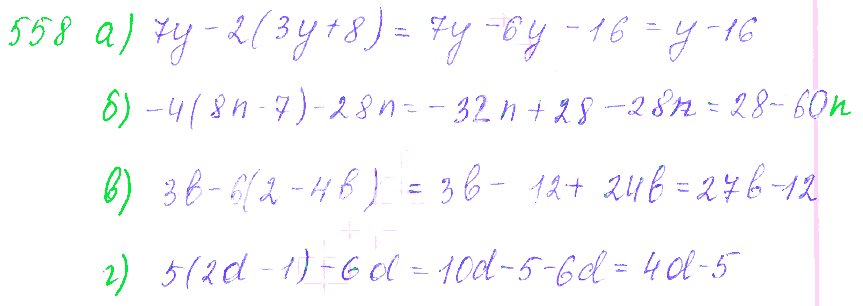 558 а) 7y - 2(3y + 8) = 7y - 6y - 16 = y - 16
б) -4(8n - 7) - 28n = -32n + 28 - 28n = 28 - 60n
в) 3b - 6(2 - 4b) = 3b - 12 + 24b = 27b - 12
г) 5(2d - 1) - 6d = 10d - 5 - 6d = 4d - 5